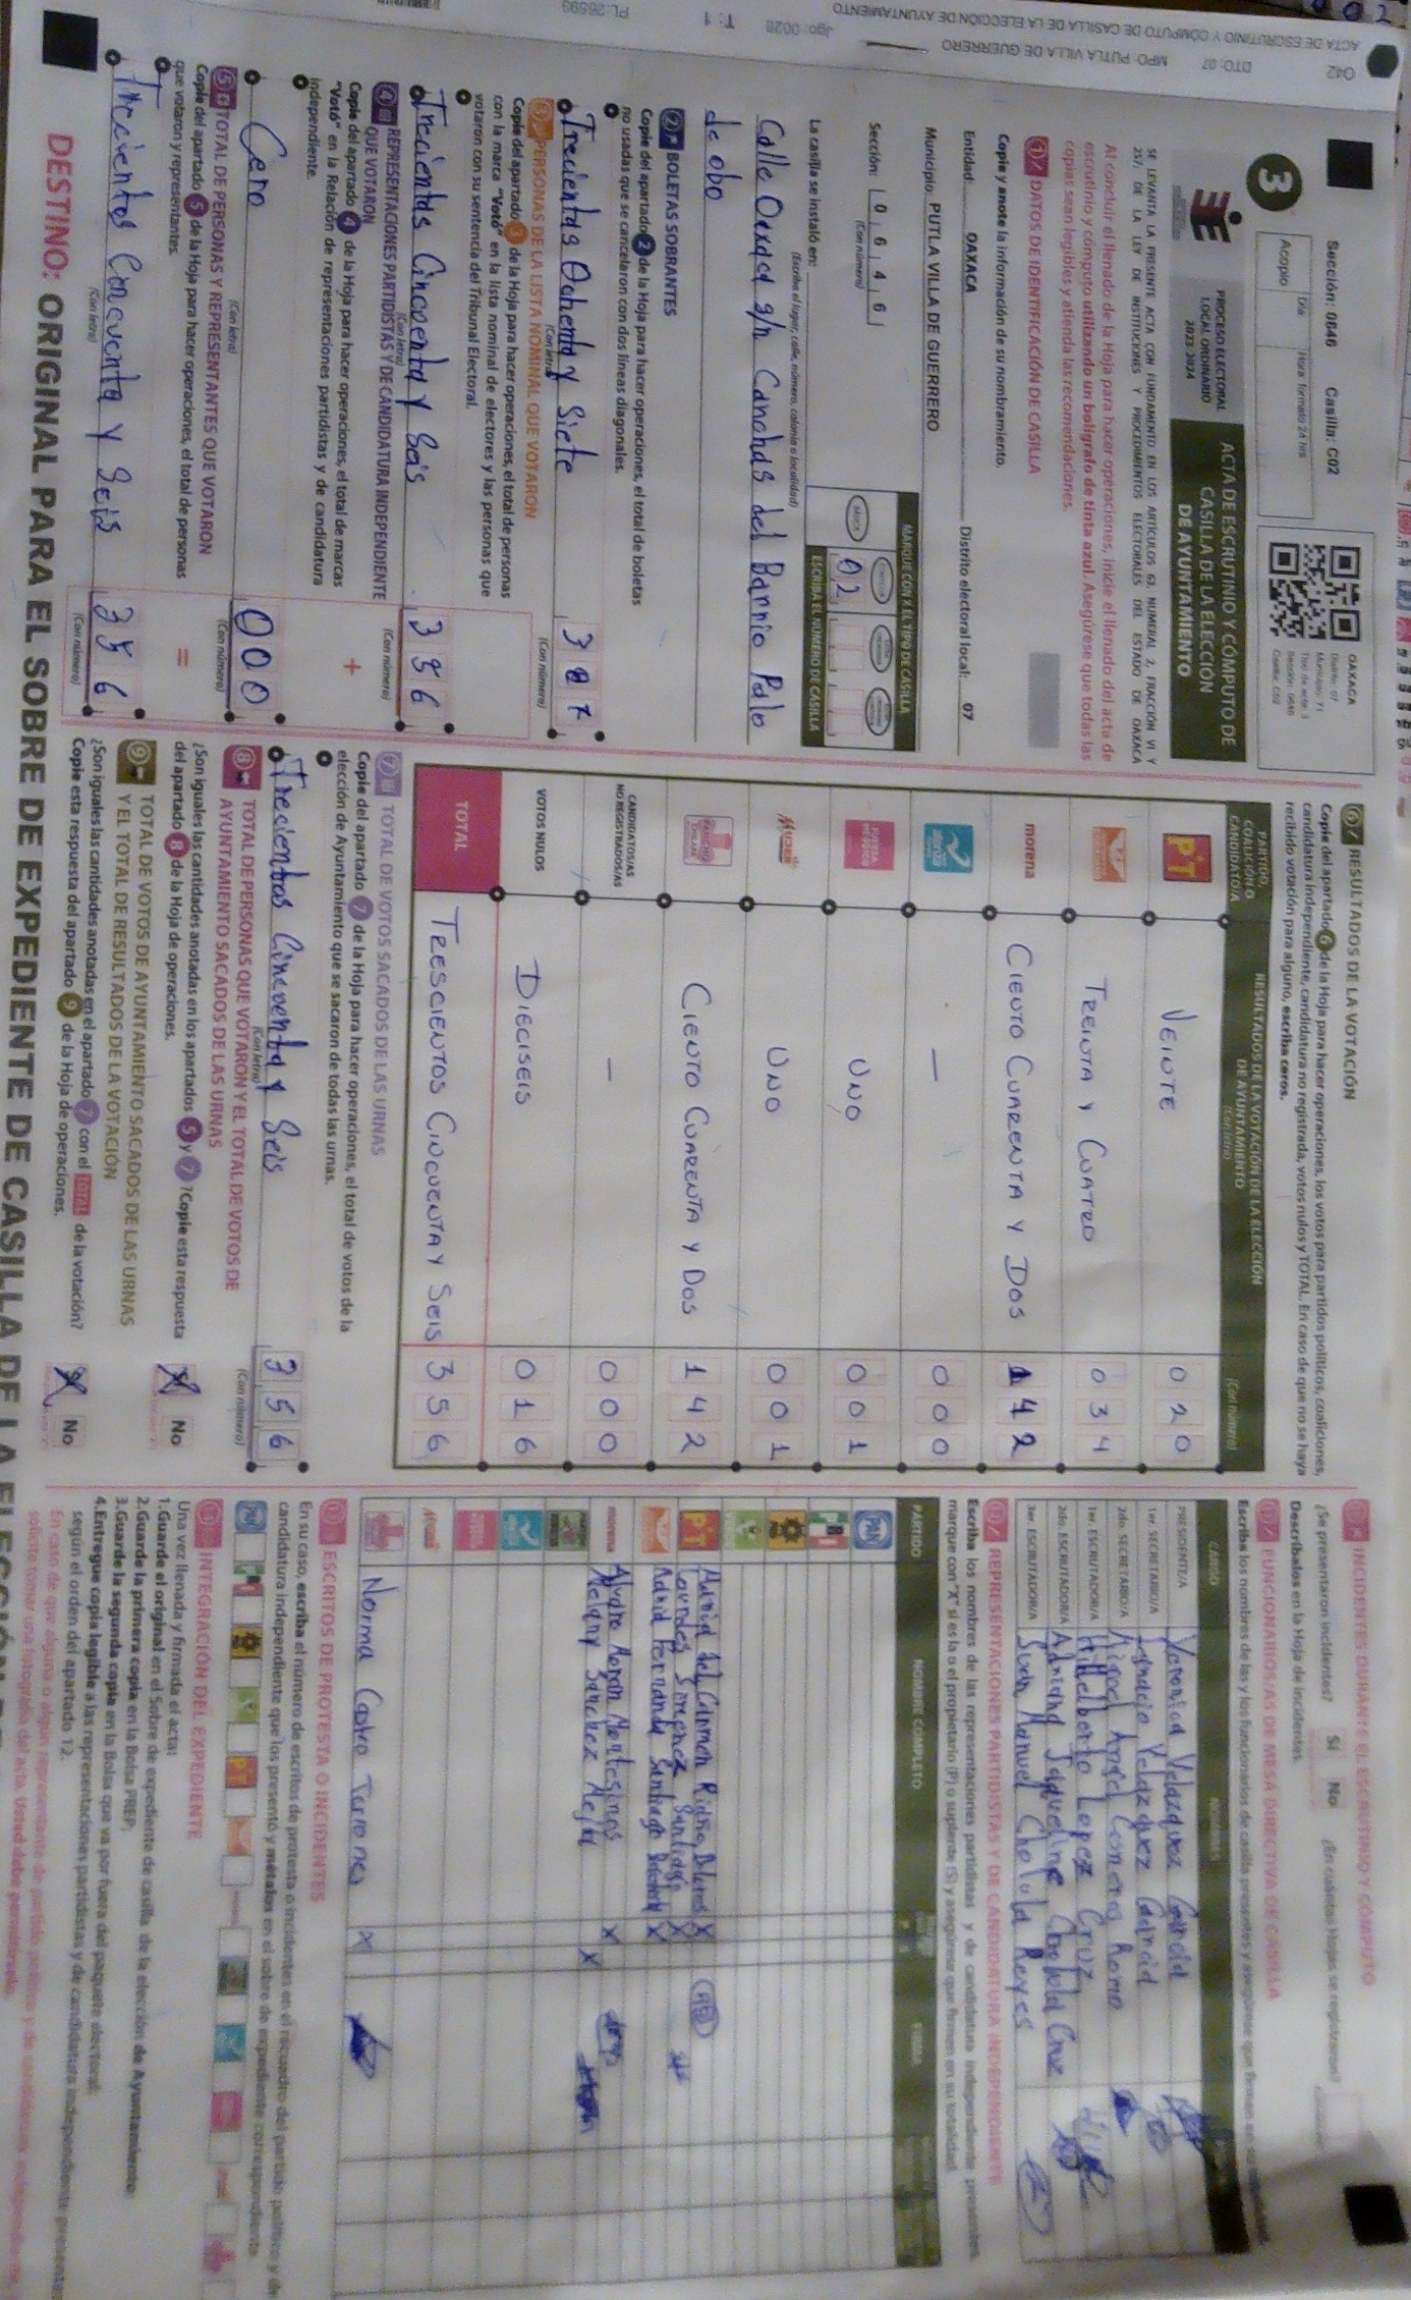 ACTA DE ESCRUTINIO Y CÓMPUTO DE CASILLA DE LA ELECCIÓN DE AYUNTAMIENTO
042 DTO: 07 MPO: PUTLA VILLA DE GUERRERO
T: 1
Sección: 0646 Casilla: C02
3
Acopio
Día
Hora formato 24 hrs
OAXACA
PROCESO ELECTORAL
LOCAL ORDINARIO
2023-2024
ACTA DE ESCRUTINIO Y CÓMPUTO DE
CASILLA DE LA ELECCIÓN
DE AYUNTAMIENTO
SE LEVANTA LA PRESENTE ACTA CON FUNDAMENTO EN LOS ARTÍCULOS 63, NUMERAL 2, FRACCIÓN VI Y
257, DE LA LEY DE INSTITUCIONES Y PROCEDIMIENTOS ELECTORALES DEL ESTADO DE OAXACA
Al concluir el llenado de la Hoja para hacer operaciones, inicie el llenado del acta de
escrutinio y cómputo utilizando un bolígrafo de tinta azul. Asegúrese que todas las
copias sean legibles y atienda las recomendaciones.
1 DATOS DE IDENTIFICACIÓN DE CASILLA
Copie y anote la información de su nombramiento.
Entidad: OAXACA Distrito electoral local: 07
Municipio: PUTLA VILLA DE GUERRERO
Sección: 0 6 4 6
(Con número)
MARQUE CON X EL TIPO DE CASILLA
BÁSICA
02
ESCRIBA EL NÚMERO DE CASILLA
La casilla se instaló en:
(Escriba el lugar, calle, número, colonia o localidad)
Calle Oaxaca s/n Canchas del Barrio Palo
de obo
2 BOLETAS SOBRANTES
Copie del apartado 2 de la Hoja para hacer operaciones, el total de boletas
no usadas que se cancelaron con dos líneas diagonales.
Trecientos Ochenta y Siete 387
(Con letra) (Con número)
3 PERSONAS DE LA LISTA NOMINAL QUE VOTARON
Copie del apartado 3 de la Hoja para hacer operaciones, el total de personas
con la marca "Votó" en la lista nominal de electores y las personas que
votaron con su sentencia del Tribunal Electoral.
Trecientos Cincoenta y Seis 356
(Con letra) (Con número)
4 REPRESENTACIONES PARTIDISTAS Y DE CANDIDATURA INDEPENDIENTE
QUE VOTARON
Copie del apartado 4 de la Hoja para hacer operaciones, el total de marcas
"Votó" en la Relación de representaciones partidistas y de candidatura
independiente.
+
Cero 000
(Con letra) (Con número)
5 TOTAL DE PERSONAS Y REPRESENTANTES QUE VOTARON
Copie del apartado 5 de la Hoja para hacer operaciones, el total de personas
que votaron y representantes.
=
Trecientos Concuenta y Seis 356
(Con letra) (Con número)
6 RESULTADOS DE LA VOTACIÓN
Copie del apartado 6 de la Hoja para hacer operaciones, los votos para partidos políticos, coaliciones,
candidatura independiente, candidatura no registrada, votos nulos y TOTAL. En caso de que no se haya
recibido votación para alguno, escriba ceros.
PARTIDO,
COALICIÓN O
CANDIDATO/A
RESULTADOS DE LA VOTACIÓN DE LA ELECCIÓN
DE AYUNTAMIENTO
(Con letra) (Con número)
PT VEINTE 020
TREINTA Y CUATRO 034
morena CIENTO CUARENTA Y DOS 142
nueva alianza — 000
FUERZA MÉXICO UNO 001
UNO 001
CIENTO CUARENTA Y DOS 142
CANDIDATOS/AS
NO REGISTRADOS/AS — 000
VOTOS NULOS DIECISEIS 016
TOTAL TRESCIENTOS CINCUENTA Y SEIS 356
7 TOTAL DE VOTOS SACADOS DE LAS URNAS
Copie del apartado 7 de la Hoja para hacer operaciones, el total de votos de la
elección de Ayuntamiento que se sacaron de todas las urnas.
Trecientos Cincuenta y Seis 356
(Con letra) (Con número)
8 TOTAL DE PERSONAS QUE VOTARON Y EL TOTAL DE VOTOS DE
AYUNTAMIENTO SACADOS DE LAS URNAS
¿Son iguales las cantidades anotadas en los apartados 5 y 7? Copie esta respuesta
del apartado 8 de la Hoja de operaciones.
No
9 TOTAL DE VOTOS DE AYUNTAMIENTO SACADOS DE LAS URNAS
Y EL TOTAL DE RESULTADOS DE LA VOTACIÓN
¿Son iguales las cantidades anotadas en el apartado 7 con el TOTAL de la votación?
Copie esta respuesta del apartado 9 de la Hoja de operaciones.
No
10 INCIDENTES DURANTE EL ESCRUTINIO Y CÓMPUTO
¿Se presentaron incidentes? Sí No ¿En cuántas Hojas se registraron?
Descríbalos en la Hoja de incidentes.
11 FUNCIONARIOS/AS DE MESA DIRECTIVA DE CASILLA
Escriba los nombres de las y los funcionarios de casilla presentes y asegúrese que firmen en su totalidad.
CARGO NOMBRES
PRESIDENTE/A Veronica Velazquez García
1er. SECRETARIO/A Ignacio Velazquez García
2do. SECRETARIO/A Miguel Angel Cisneros Romo
1er. ESCRUTADOR/A Hilleberto Lopez Cruz
2do. ESCRUTADOR/A Adriana Jaqueline Cholula Cruz
3er. ESCRUTADOR/A Juan Manuel Cholula Reyes
12 REPRESENTACIONES PARTIDISTAS Y DE CANDIDATURA INDEPENDIENTE
Escriba los nombres de las representaciones partidistas y de candidatura independiente presentes,
marque con "X" si es la o el propietario (P) o suplente (S) y asegúrese que firmen en su totalidad.
PARTIDO NOMBRE COMPLETO FIRMA
PAN
PRI
PT Maria del Carmen Riaño Bolaños X
Lourdes Jimenez Santiago X
Astrid Fernanda Santiago X
morena Alvaro Moran Montesinos X
Melany Sanchez Mejia X
Norma Castro Terrones X
13 ESCRITOS DE PROTESTA O INCIDENTES
En su caso, escriba el número de escritos de protesta o incidentes en el recuadro del partido político y de
candidatura independiente que los presentó y métalos en el sobre de expediente correspondiente.
14 INTEGRACIÓN DEL EXPEDIENTE
Una vez llenada y firmada el acta:
1.Guarde el original en el Sobre de expediente de casilla de la elección de Ayuntamiento.
2.Guarde la primera copia en la Bolsa PREP.
3.Guarde la segunda copia en la Bolsa que va por fuera del paquete electoral.
4.Entregue copia legible a las representaciones partidistas y de candidatura independiente presentes
según el orden del apartado 12.
En caso de que alguna o algún representante de partido político y de candidatura independiente
solicite tomar una fotografía del acta, Usted debe permitírselo.
DESTINO: ORIGINAL PARA EL SOBRE DE EXPEDIENTE DE CASILLA DE LA ELECCIÓN